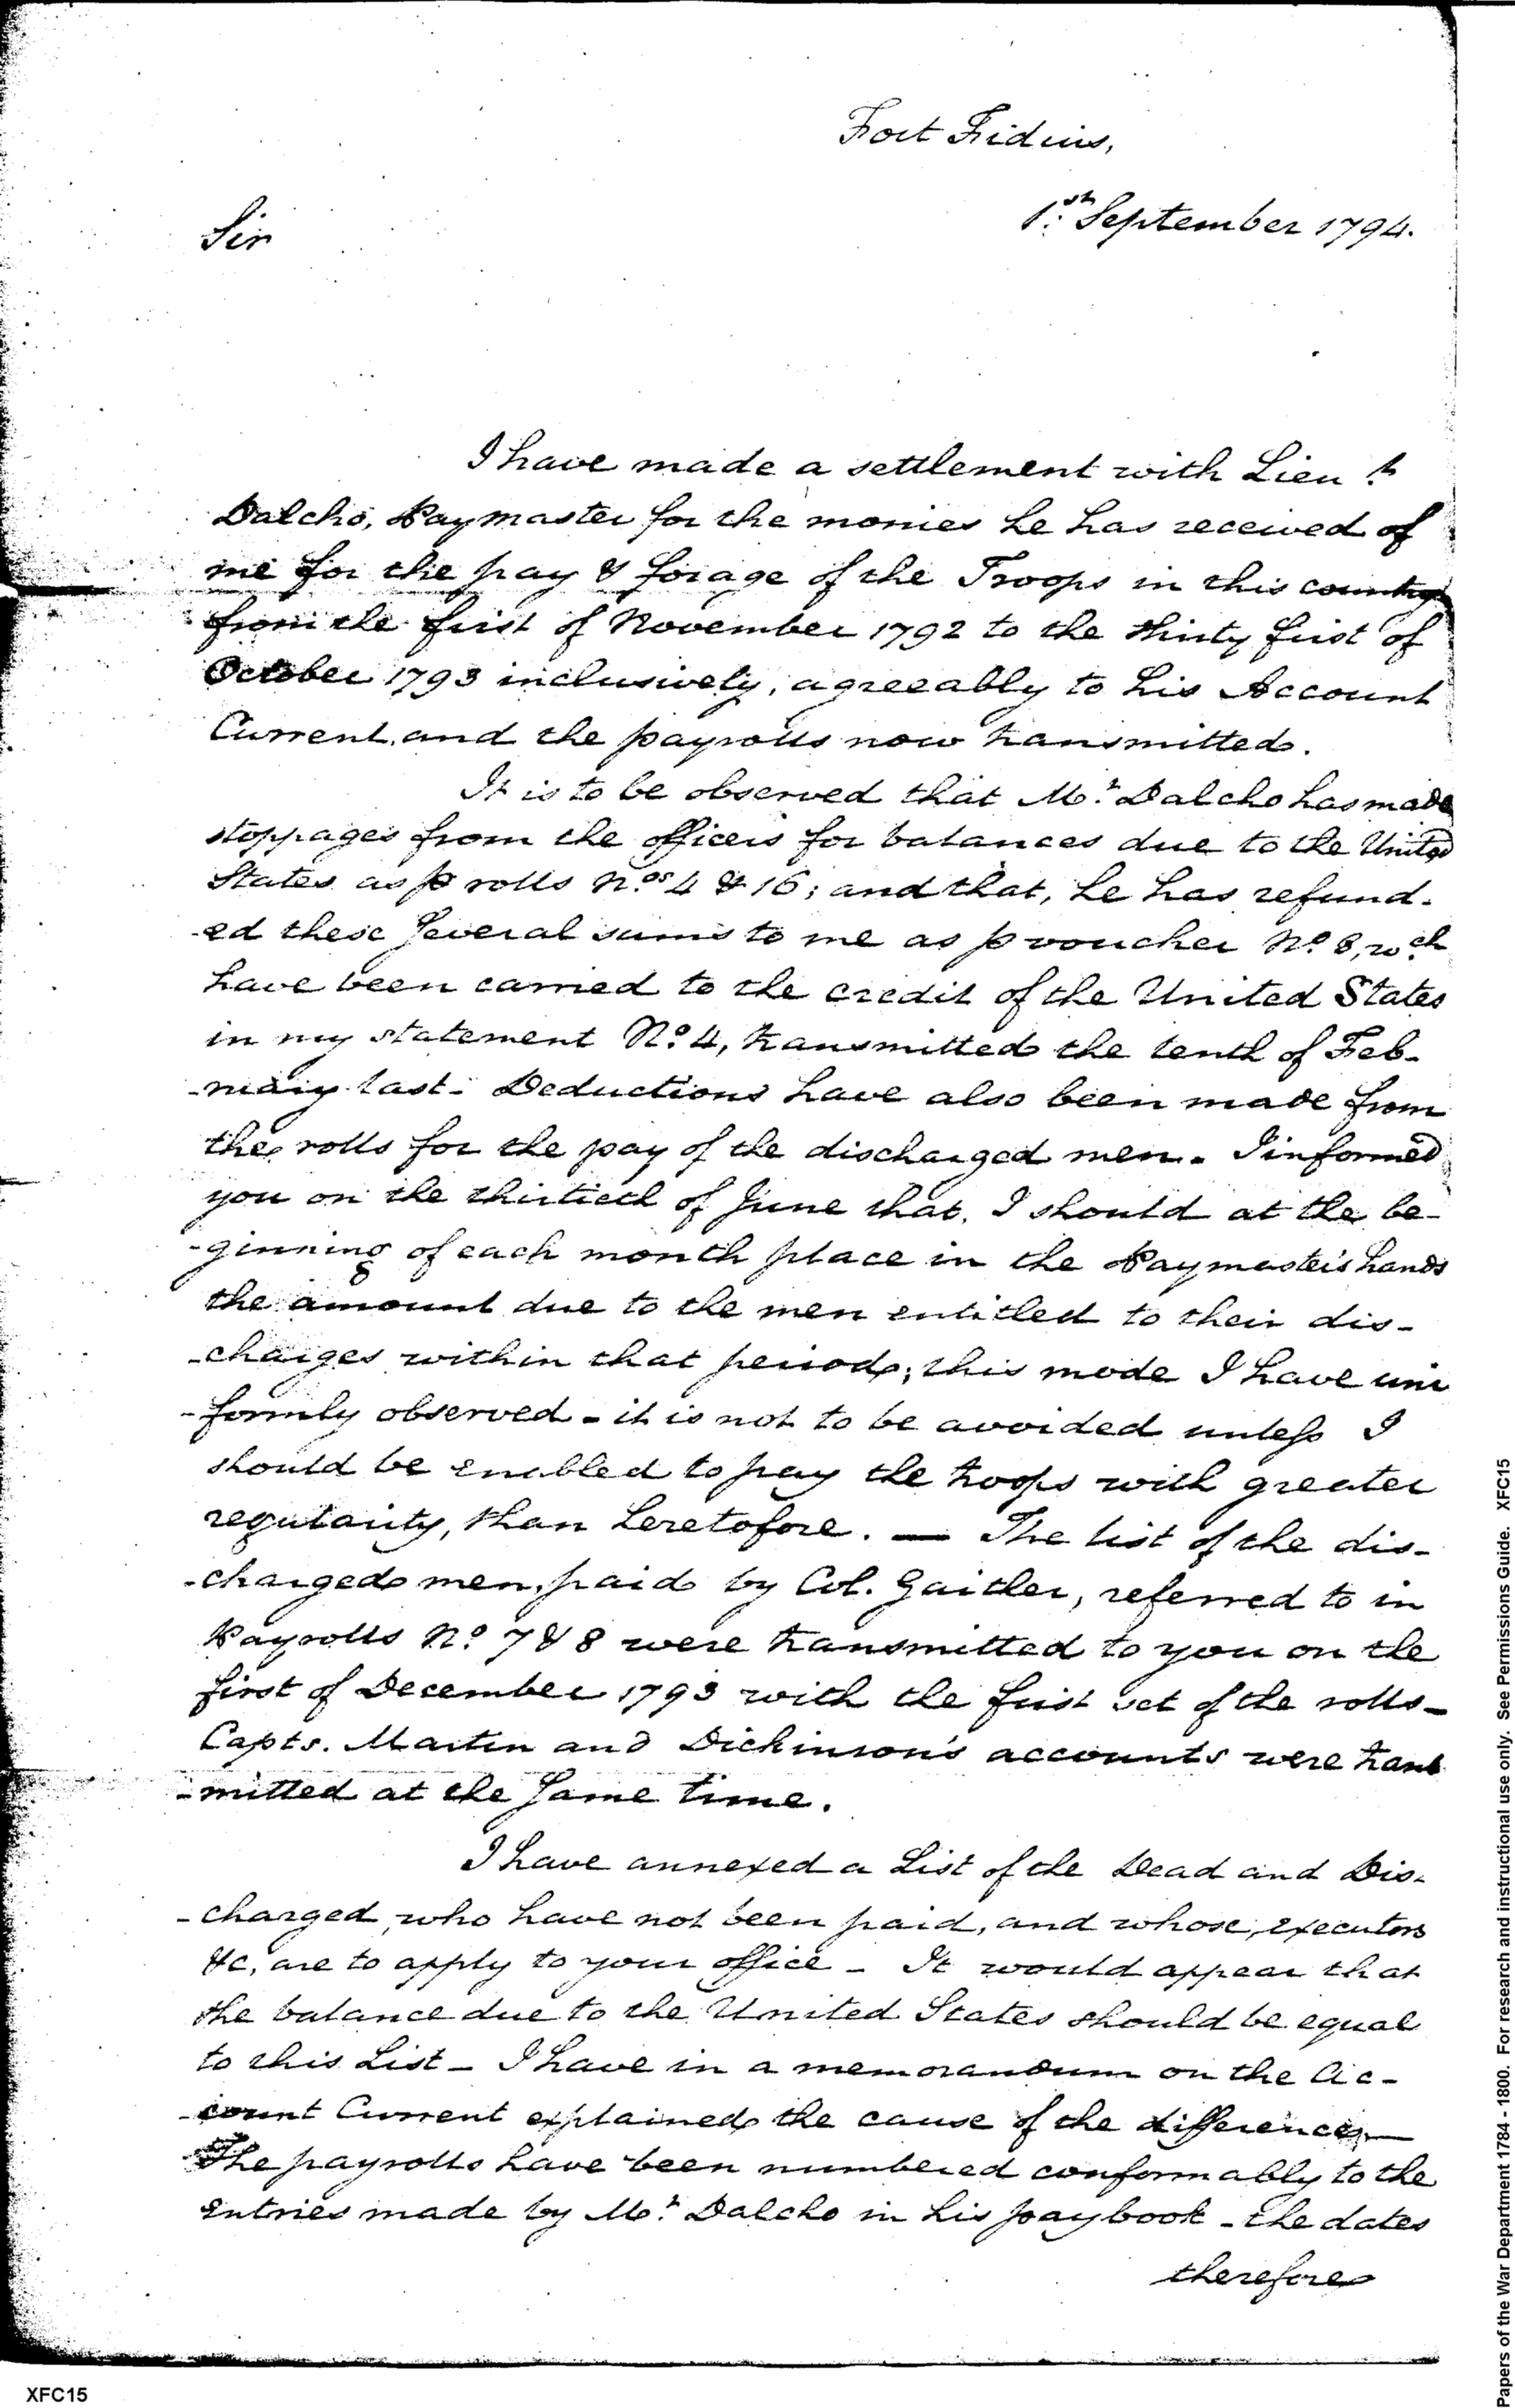 Fort Fidius,
1st September 1794.
Sir
I have made a settlement with Lieut
Dalcho, Paymaster for the monies he has received of
me for the pay & forage of the Troops in this country
from the first of November 1792 to the thirty first of
October 1793 inclusively, agreeably to his Account
Current, and the payrolls now transmitted.
It is to be observed that Mr. Dalcho has made
stoppages from the officers for balances due to the United
States as p rolls Nos 4 & 16; and that, he has refund-
-ed these several sums to me as p voucher No. 8, wch
have been carried to the credit of the United States
in my statement No. 4, transmitted the tenth of Feb-
-ruary last. Deductions have also been made from
the rolls for the pay of the discharged men. I informed
you on the thirtieth of June that, I should at the be-
-ginning of each month place in the Paymaster's hands
the amount due to the men entitled to their dis-
-charges within that period; this mode I have uni
-formly observed - it is not to be avoided unless I
should be enabled to pay the troops with greater
regularity, than heretofore. — The list of the dis-
-charged men, paid by Col. Gaither, referred to in
Payrolls No. 7 & 8 were transmitted to you on the
first of December 1793 with the first set of the rolls -
Capts. Martin and Dickinson's accounts were trans
-mitted at the same time.
I have annexed a List of the Dead and Dis-
-charged, who have not been paid, and whose, executors
&c, are to apply to your office - It would appear that
the balance due to the United States should be equal
to this List - I have in a memorandum on the Ac-
-count Current explained the cause of the difference —
The payrolls have been numbered conformably to the
entries made by Mr. Dalcho in his paybook - the dates
therefore
XFC15
Papers of the War Department 1784 - 1800. For research and instructional use only. See Permissions Guide. XFC15